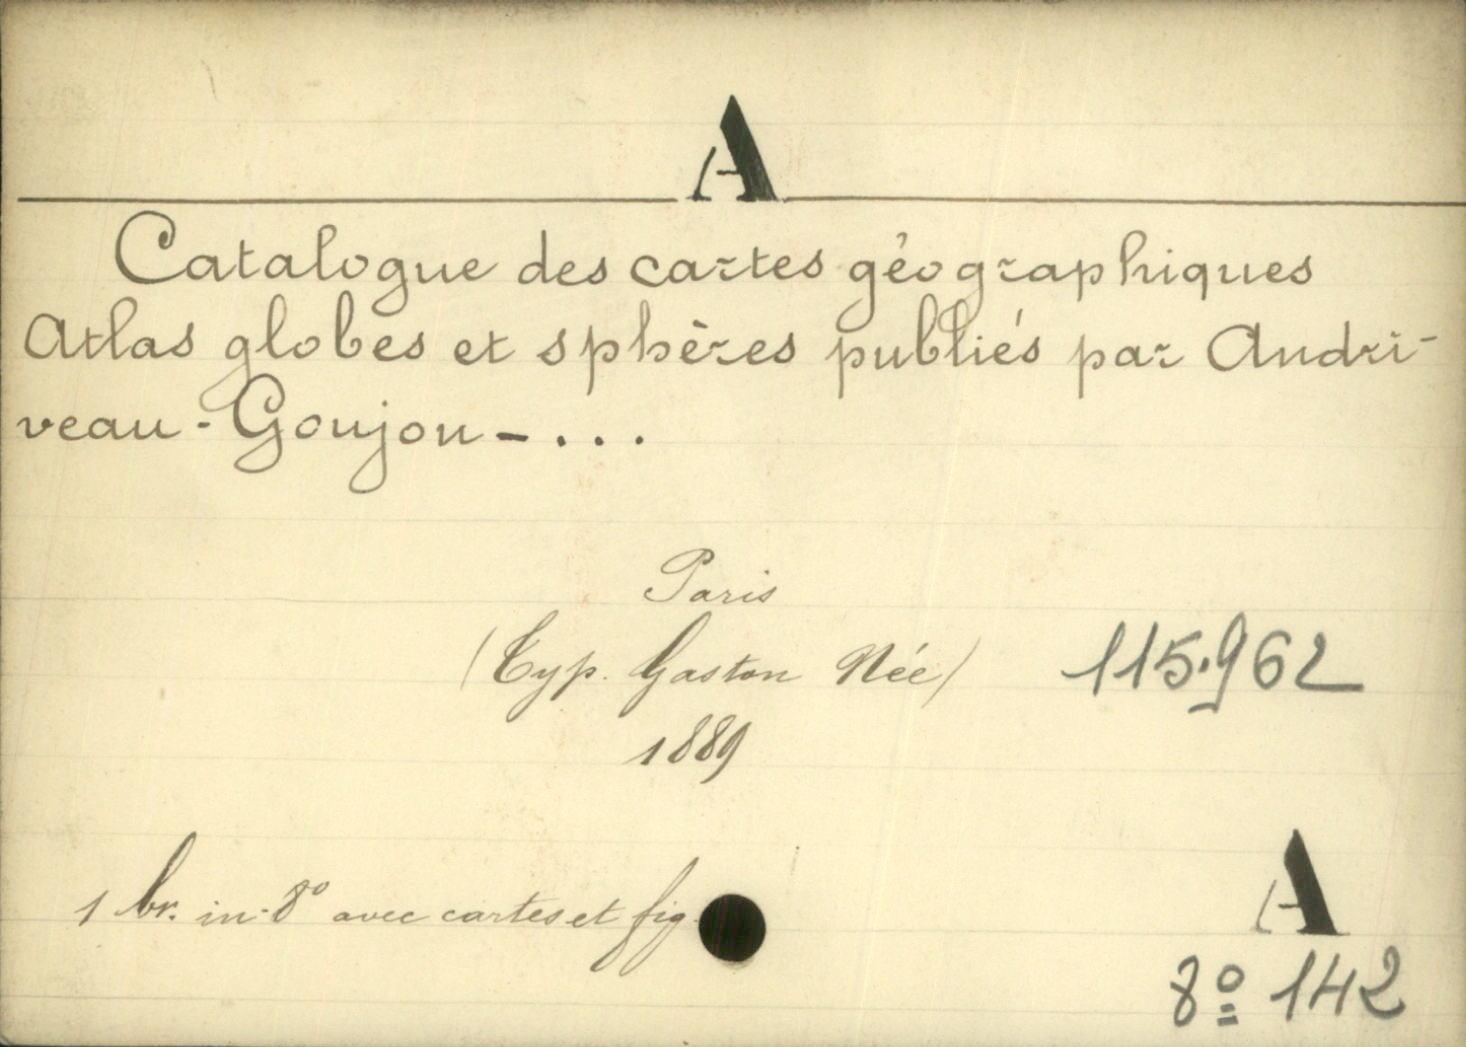 A
Catalogue des cartes géographiques
Atlas globes et sphères publiés par Andri-
veau-Goujon-...
Paris
(Typ. Gaston Née)
115.962
1889
1 br. in-8° avec cartes et fig.
A
8º 142